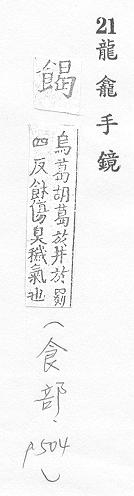 21龍龕手鏡
餲
烏葛胡葛於犗於罽
四反餘傷臭穢氣也
(食部、p504)